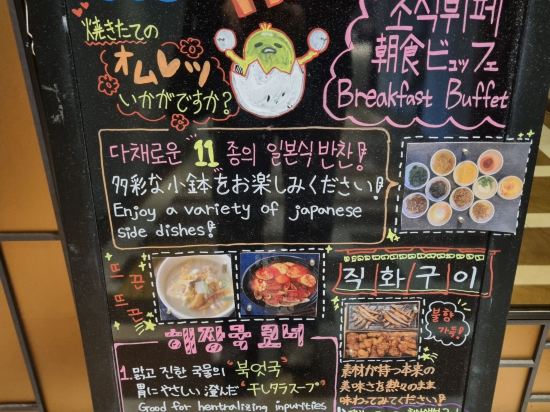 조식뷔페
焼きたての
オムレツ
いかがですか?
朝食ビュッフェ
Breakfast Buffet
다채로운 11 종의 일본식 반찬!
多彩な小鉢をお楽しみください!
Enjoy a variety of japanese
side dishes!
따끈
따끈
직화구이
해장국 코너
불향
가득!
1. 맑고 진한 국물의 "북엇국"
胃にやさしい澄んだ "干しタラスープ"
Good for hentralizing inpurities
素材が持つ本来の
美味さを熱々のまま
味わってみてください!